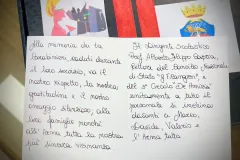 Alla memoria dei tre
Carabinieri, caduti durante
il loro servizio, va il
nostro rispetto, la nostra
gratitudine e il nostro
omaggio silenzioso, alle
loro famiglie perché
all'Arma tutta la nostra
più sincera vicinanza
Il Dirigente Scolastico
Prof. Alberto Filippo
Rettore del Convitto Nazionale
di Stato "
e
unitamente a tutto il
personale si inchina
davanti a Marco,
Davide, Valerio e
l'Arma tutta